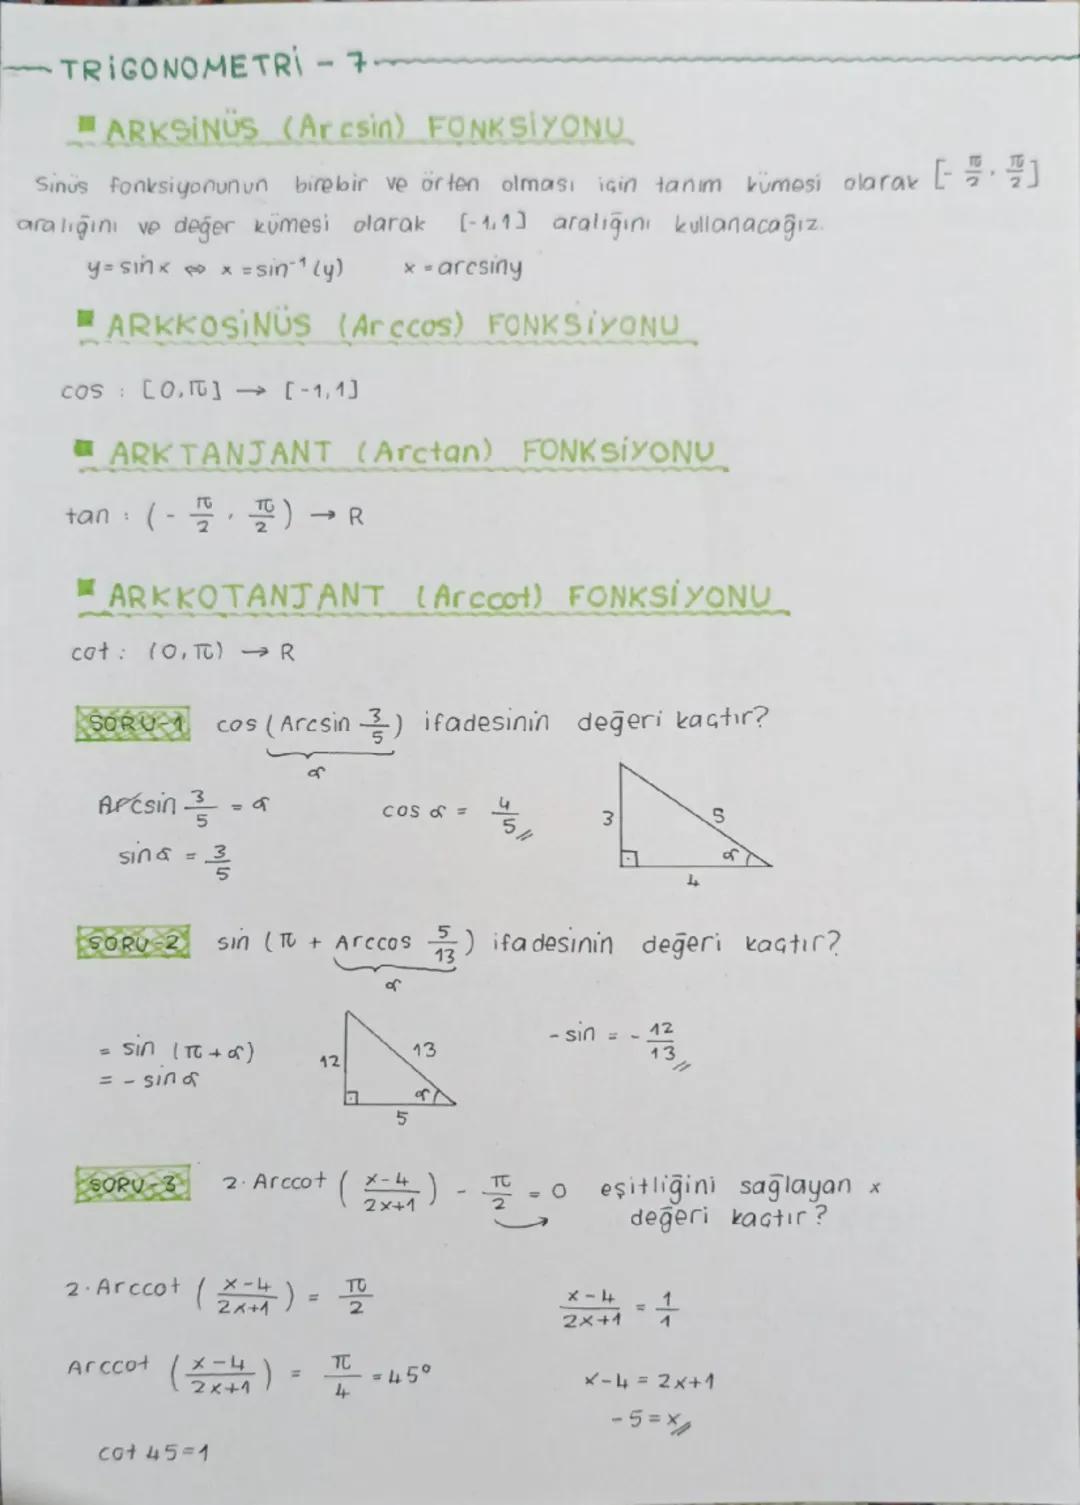 TRİGONOMETRİ - 7
ARKSİNÜS (Arcsin) FONKSİYONU
Sinüs fonksiyonunun birebir ve örten olması için tanım kümesi olarak [-π/2, π/2]
aralığını ve değer kümesi olarak [-1,1] aralığını kullanacağız.
y=sinx ⇔ x=sin⁻¹(y) x=arcsiny
ARKKOSİNÜS (Arccos) FONKSİYONU
cos : [0,π] → [-1,1]
ARKTANJANT (Arctan) FONKSİYONU
tan : (-π/2, π/2) → R
ARKKOTANJANT (Arccot) FONKSİYONU
cot : (0,π) → R
SORU-1 cos (Arcsin 3/5) ifadesinin değeri kaçtır?
α
Arcsin 3/5 = α cos α = 4/5 //
sinα = 3/5
3 5 α 4
SORU-2 sin (π + Arccos 5/13) ifadesinin değeri kaçtır?
α
= sin (π+α) - sin = - 12/13 //
= - sin α
12 13 α 5
SORU-3 2. Arccot (x-4/2x+1) - π/2 = 0 eşitliğini sağlayan x
değeri kaçtır?
2. Arccot (x-4/2x+1) = π/2 x-4/2x+1 = 1/1
Arccot (x-4/2x+1) = π/4 = 45° x-4 = 2x+1
-5 = x //
cot 45=1